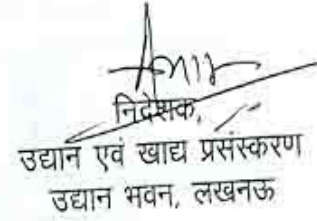 निदेशक,
उद्यान एवं खाद्य प्रसंस्करण
उद्यान भवन, लखनऊ